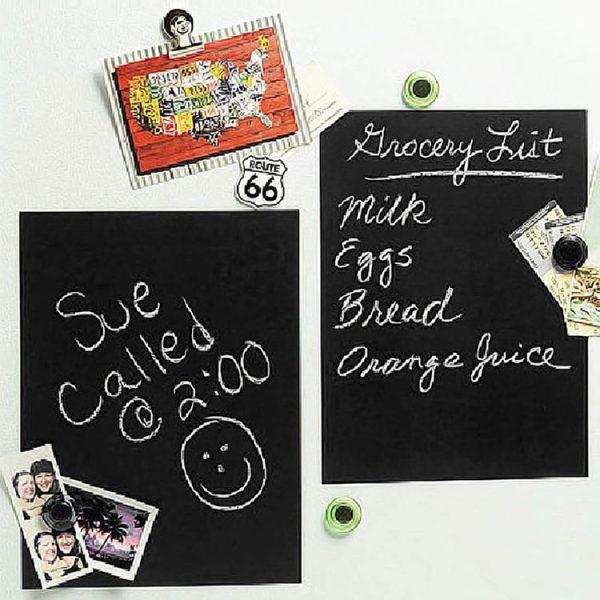 ROUTE
66
Sue
Called
@ 2:00
Grocery List
Milk
Eggs
Bread
Orange Juice